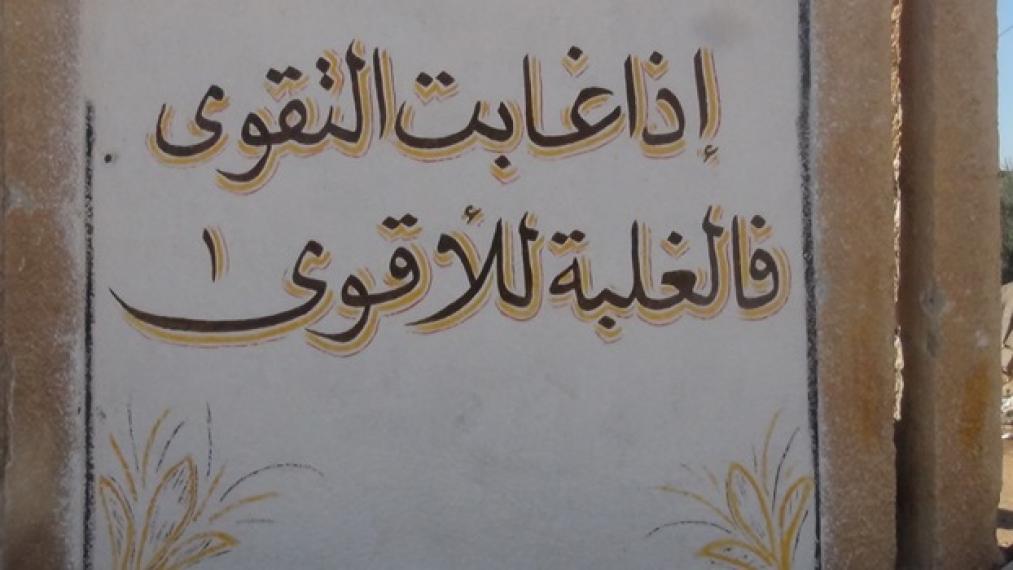 إذا غابت التقوى
فالغلبة للأقوى